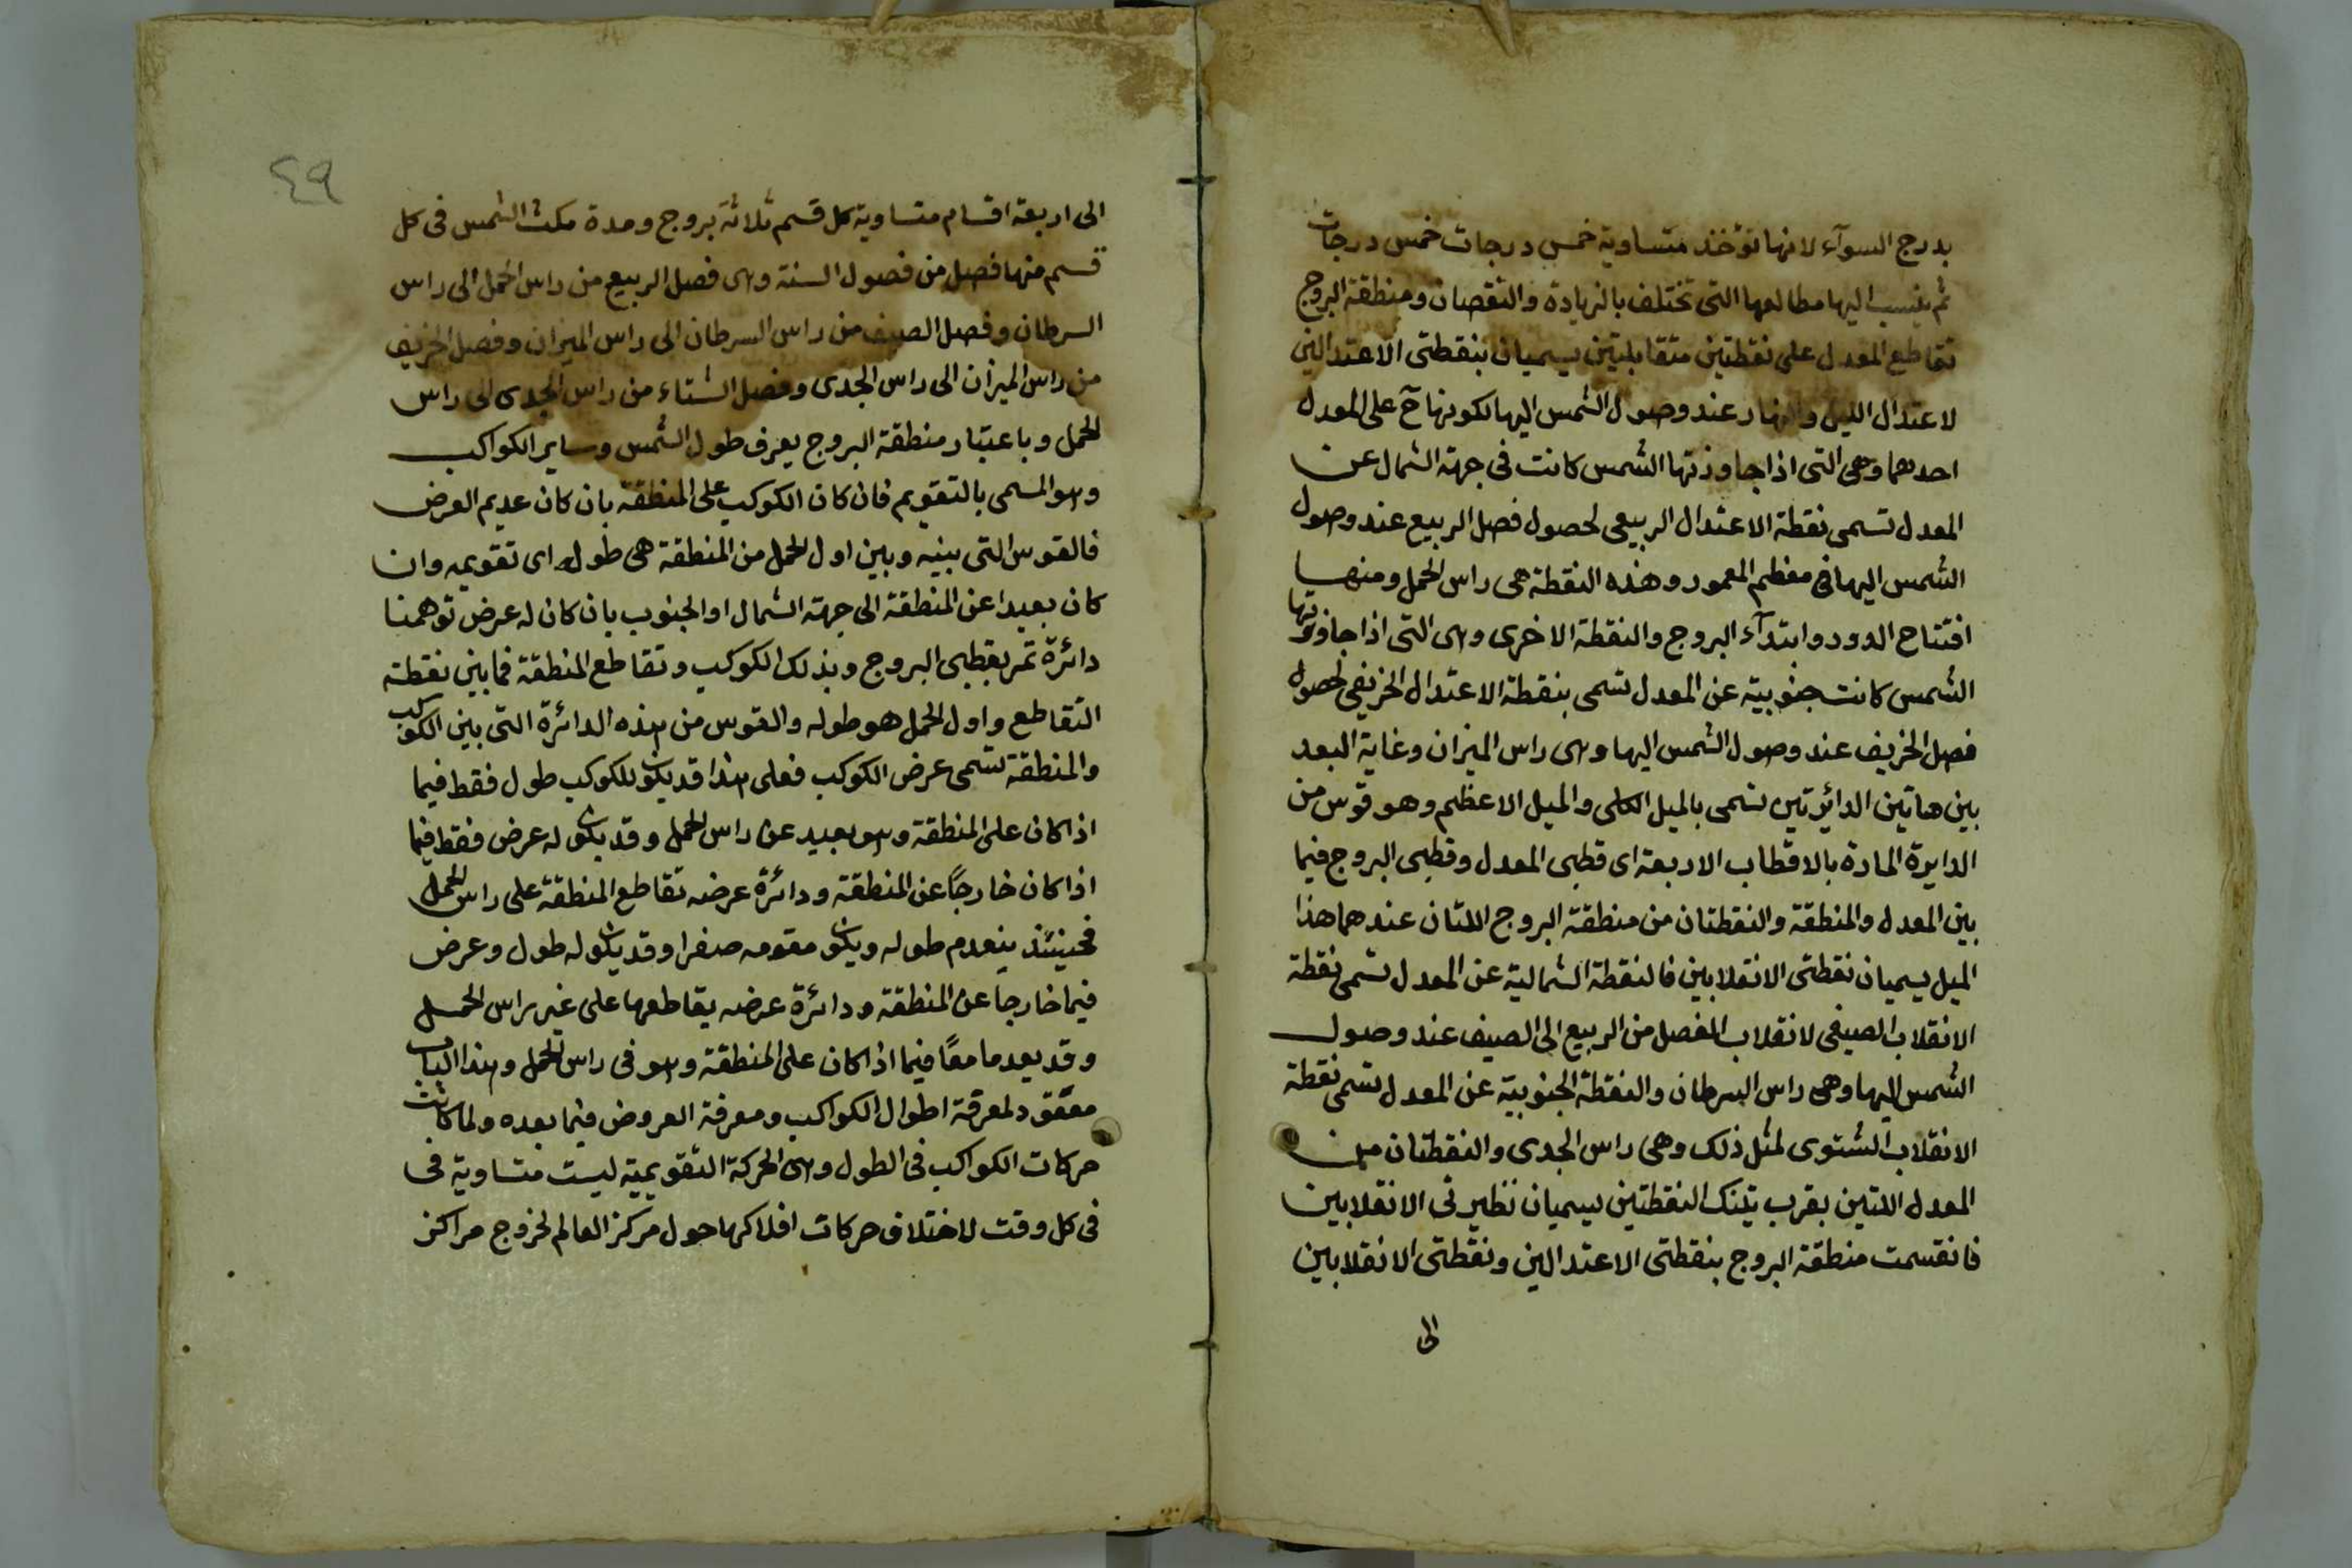 بدرج السوآء لانها تؤخذ متساوية خمس درجات خمس درجات
ثم ينسب اليها مطالعها التى تختلف بالزيادة والنقصان ومنطقة البروج
تقاطع المعدل على نقطتين متقابلتين يسميان بنقطتى الاعتدالين
لاعتدال الليل والنهار عند وصول الشمس اليها لكونها ح على المعدل
احدهما وهى التى اذا جاوزتها الشمس كانت فى جهة الشمال عن
المعدل تسمى نقطة الاعتدال الربيعى لحصول فصل الربيع عند وصول
الشمس اليها فى معظم المعمور وهذه النقطة هى راس الحمل ومنها
افتتاح الدور وابتدآء البروج والنقطة الاخرى وهى التى اذا جاوزتها
الشمس كانت جنوبية عن المعدل تسمى بنقطة الاعتدال الخريفى لحصول
فصل الخريف عند وصول الشمس اليها وهى راس الميزان وغاية البعد
بين هاتين الدائرتين تسمى بالميل الكلى والميل الاعظم وهو قوس من
الدايرة المارة بالاقطاب الاربعة اى قطبى المعدل وقطبى البروج فيما
بين المعدل والمنطقة والنقطتان من منطقة البروج اللتان عندهما هذا
الميل يسميان نقطتى الانقلابين فالنقطة الشمالية عن المعدل تسمى نقطة
الانقلاب الصيفى لانقلاب الفصل من الربيع الى الصيف عند وصول
الشمس اليها وهى راس السرطان والنقطة الجنوبية عن المعدل تسمى نقطة
الانقلاب الشتوى لمثل ذلك وهى راس الجدى والنقطتان من
المعدل اللتين بقرب تينك النقطتين يسميان نظيرتى الانقلابين
فانقسمت منطقة البروج بنقطتى الاعتدالين ونقطتى الانقلابين
الى
٤٩
الى اربعة اقسام متساوية كل قسم ثلاثة بروج ومدة مكث الشمس فى كل
قسم منها فصل من فصول السنة وهى فصل الربيع من راس الحمل الى راس
السرطان وفصل الصيف من راس السرطان الى راس الميزان وفصل الخريف
من راس الميزان الى راس الجدى وفصل الشتاء من راس الجدى الى راس
الحمل وباعتبار منطقة البروج يعرف طول الشمس وساير الكواكب
وهو المسمى بالتقويم فان كان الكوكب على المنطقة بان كان عديم العرض
فالقوس التى بينه وبين اول الحمل من المنطقة هى طوله اى تقويمه وان
كان بعيدا عن المنطقة الى جهة الشمال او الجنوب بان كان له عرض توهمنا
دائرة تمر بقطبى البروج وبذلك الكوكب وتقاطع المنطقة فما بين نقطة
التقاطع واول الحمل هو طوله والقوس من هذه الدائرة التى بين الكوكب
والمنطقة تسمى عرض الكوكب فعلى هذا قد يكون للكوكب طول فقط فيما
اذا كان على المنطقة وهو بعيد عن راس الحمل وقد يكون له عرض فقط فيما
اذا كان خارجًا عن المنطقة ودائرة عرضه تقاطع المنطقة على راس الحمل
فحينئذ ينعدم طوله ويكون مقومه صفرا وقد يكون له طول وعرض
فيما خارجا عن المنطقة ودائرة عرضه يقاطعها على غير راس الحمل
وقد يعدما معًا فيما اذا كان على المنطقة وهو فى راس الحمل وهذا الباب
معقود لمعرفة اطوال الكواكب ومعرفة العروض فيما بعده ولما كانت
حركات الكواكب فى الطول وهى الحركة التقويمية ليست متساوية فى
فى كل وقت لاختلاف حركات افلاكها حول مركز العالم لخروج مراكز